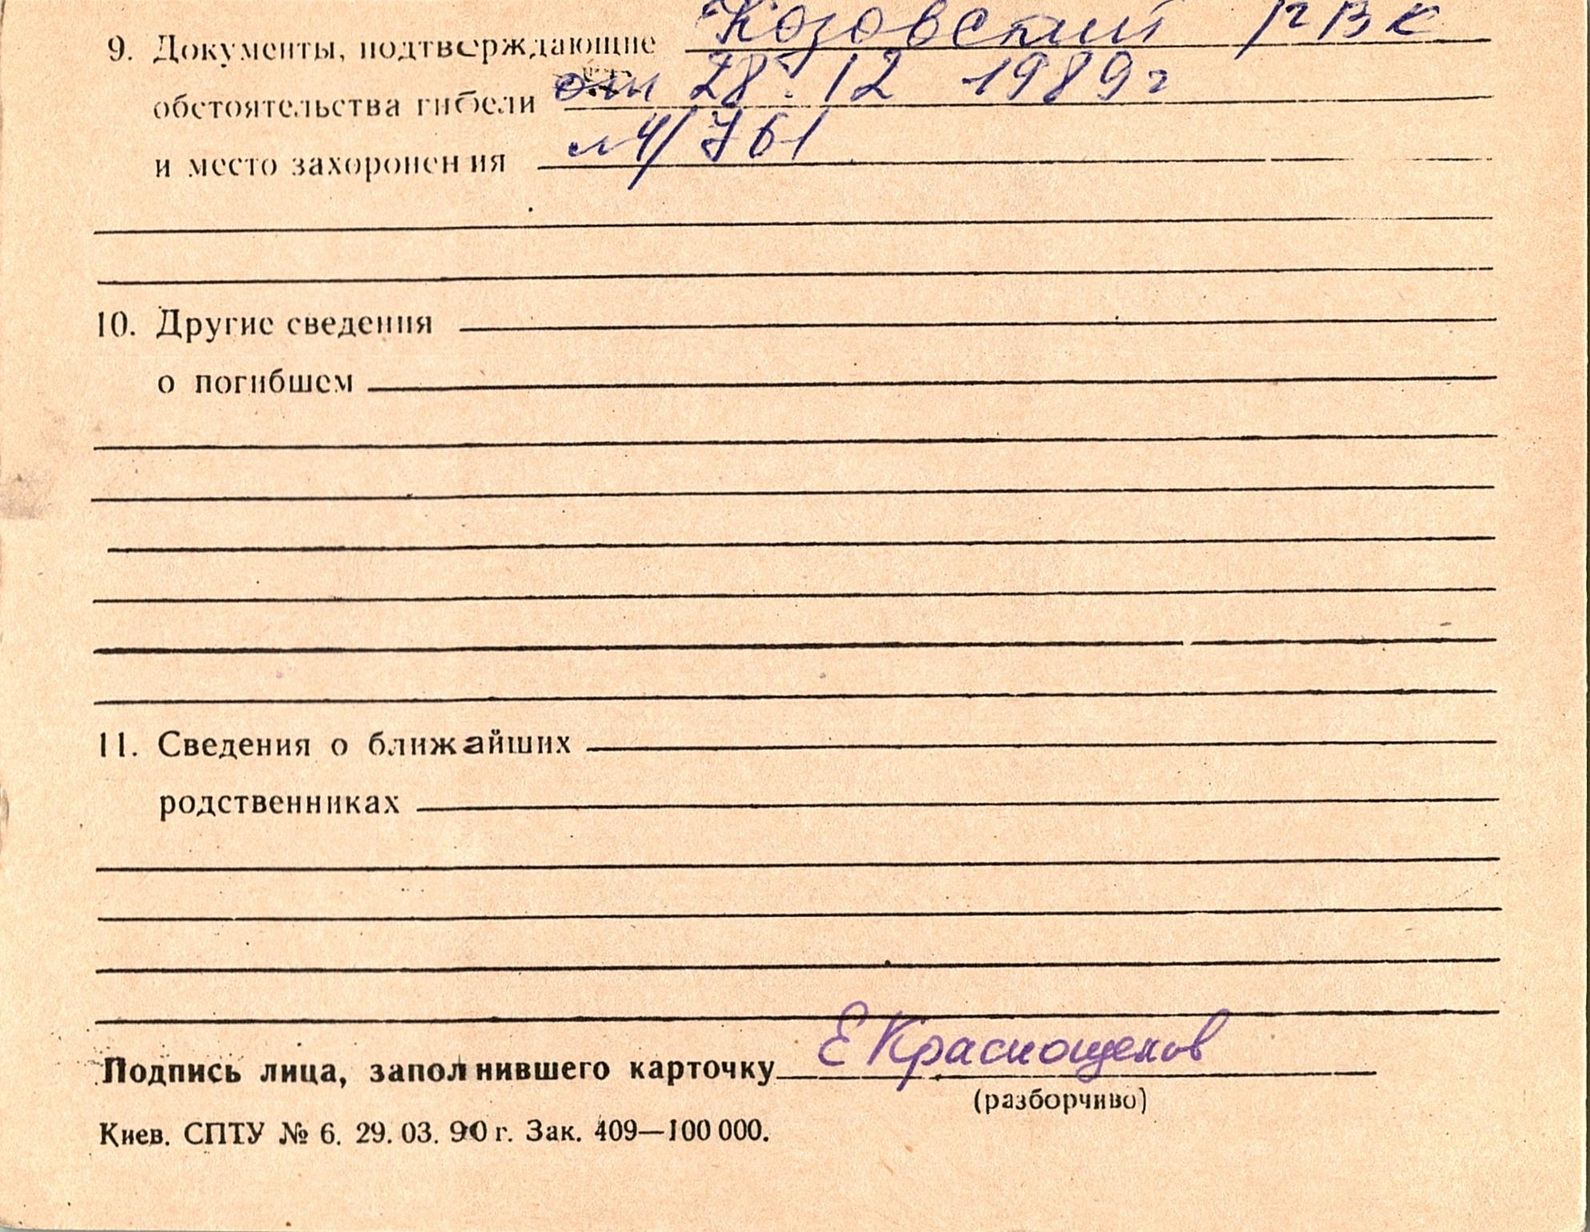 9. Документы, подтверждающие Козовский РВК
обстоятельства гибели от 28.12 1989г
и место захоронения №4/761
10. Другие сведения
о погибшем
11. Сведения о ближайших
родственниках
Подпись лица, заполнившего карточку Е Краснощеков
(разборчиво)
Киев. СПТУ № 6. 29. 03. 90 г. Зак. 409—100 000.